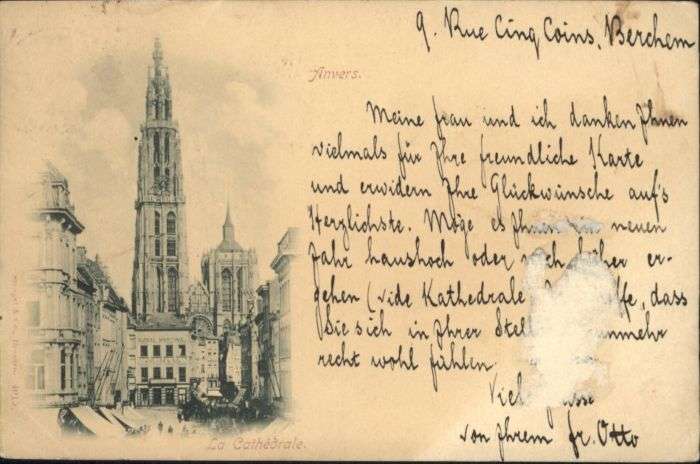 9. Rue Cinq Coins, Berchem
Anvers.
Meine Frau und ich danken Ihnen
vielmals für Ihre freundliche Karte
und erwidern Ihre Glückwünsche auf's
Herzlichste. Möge es Ihnen im neuen
Jahr haushoch oder noch höher er-
gehen (vide Kathedrale
dass
Sie sich in Ihrer
recht wohl fühlen.
von Ihrem fr. Otto
La Cathédrale.